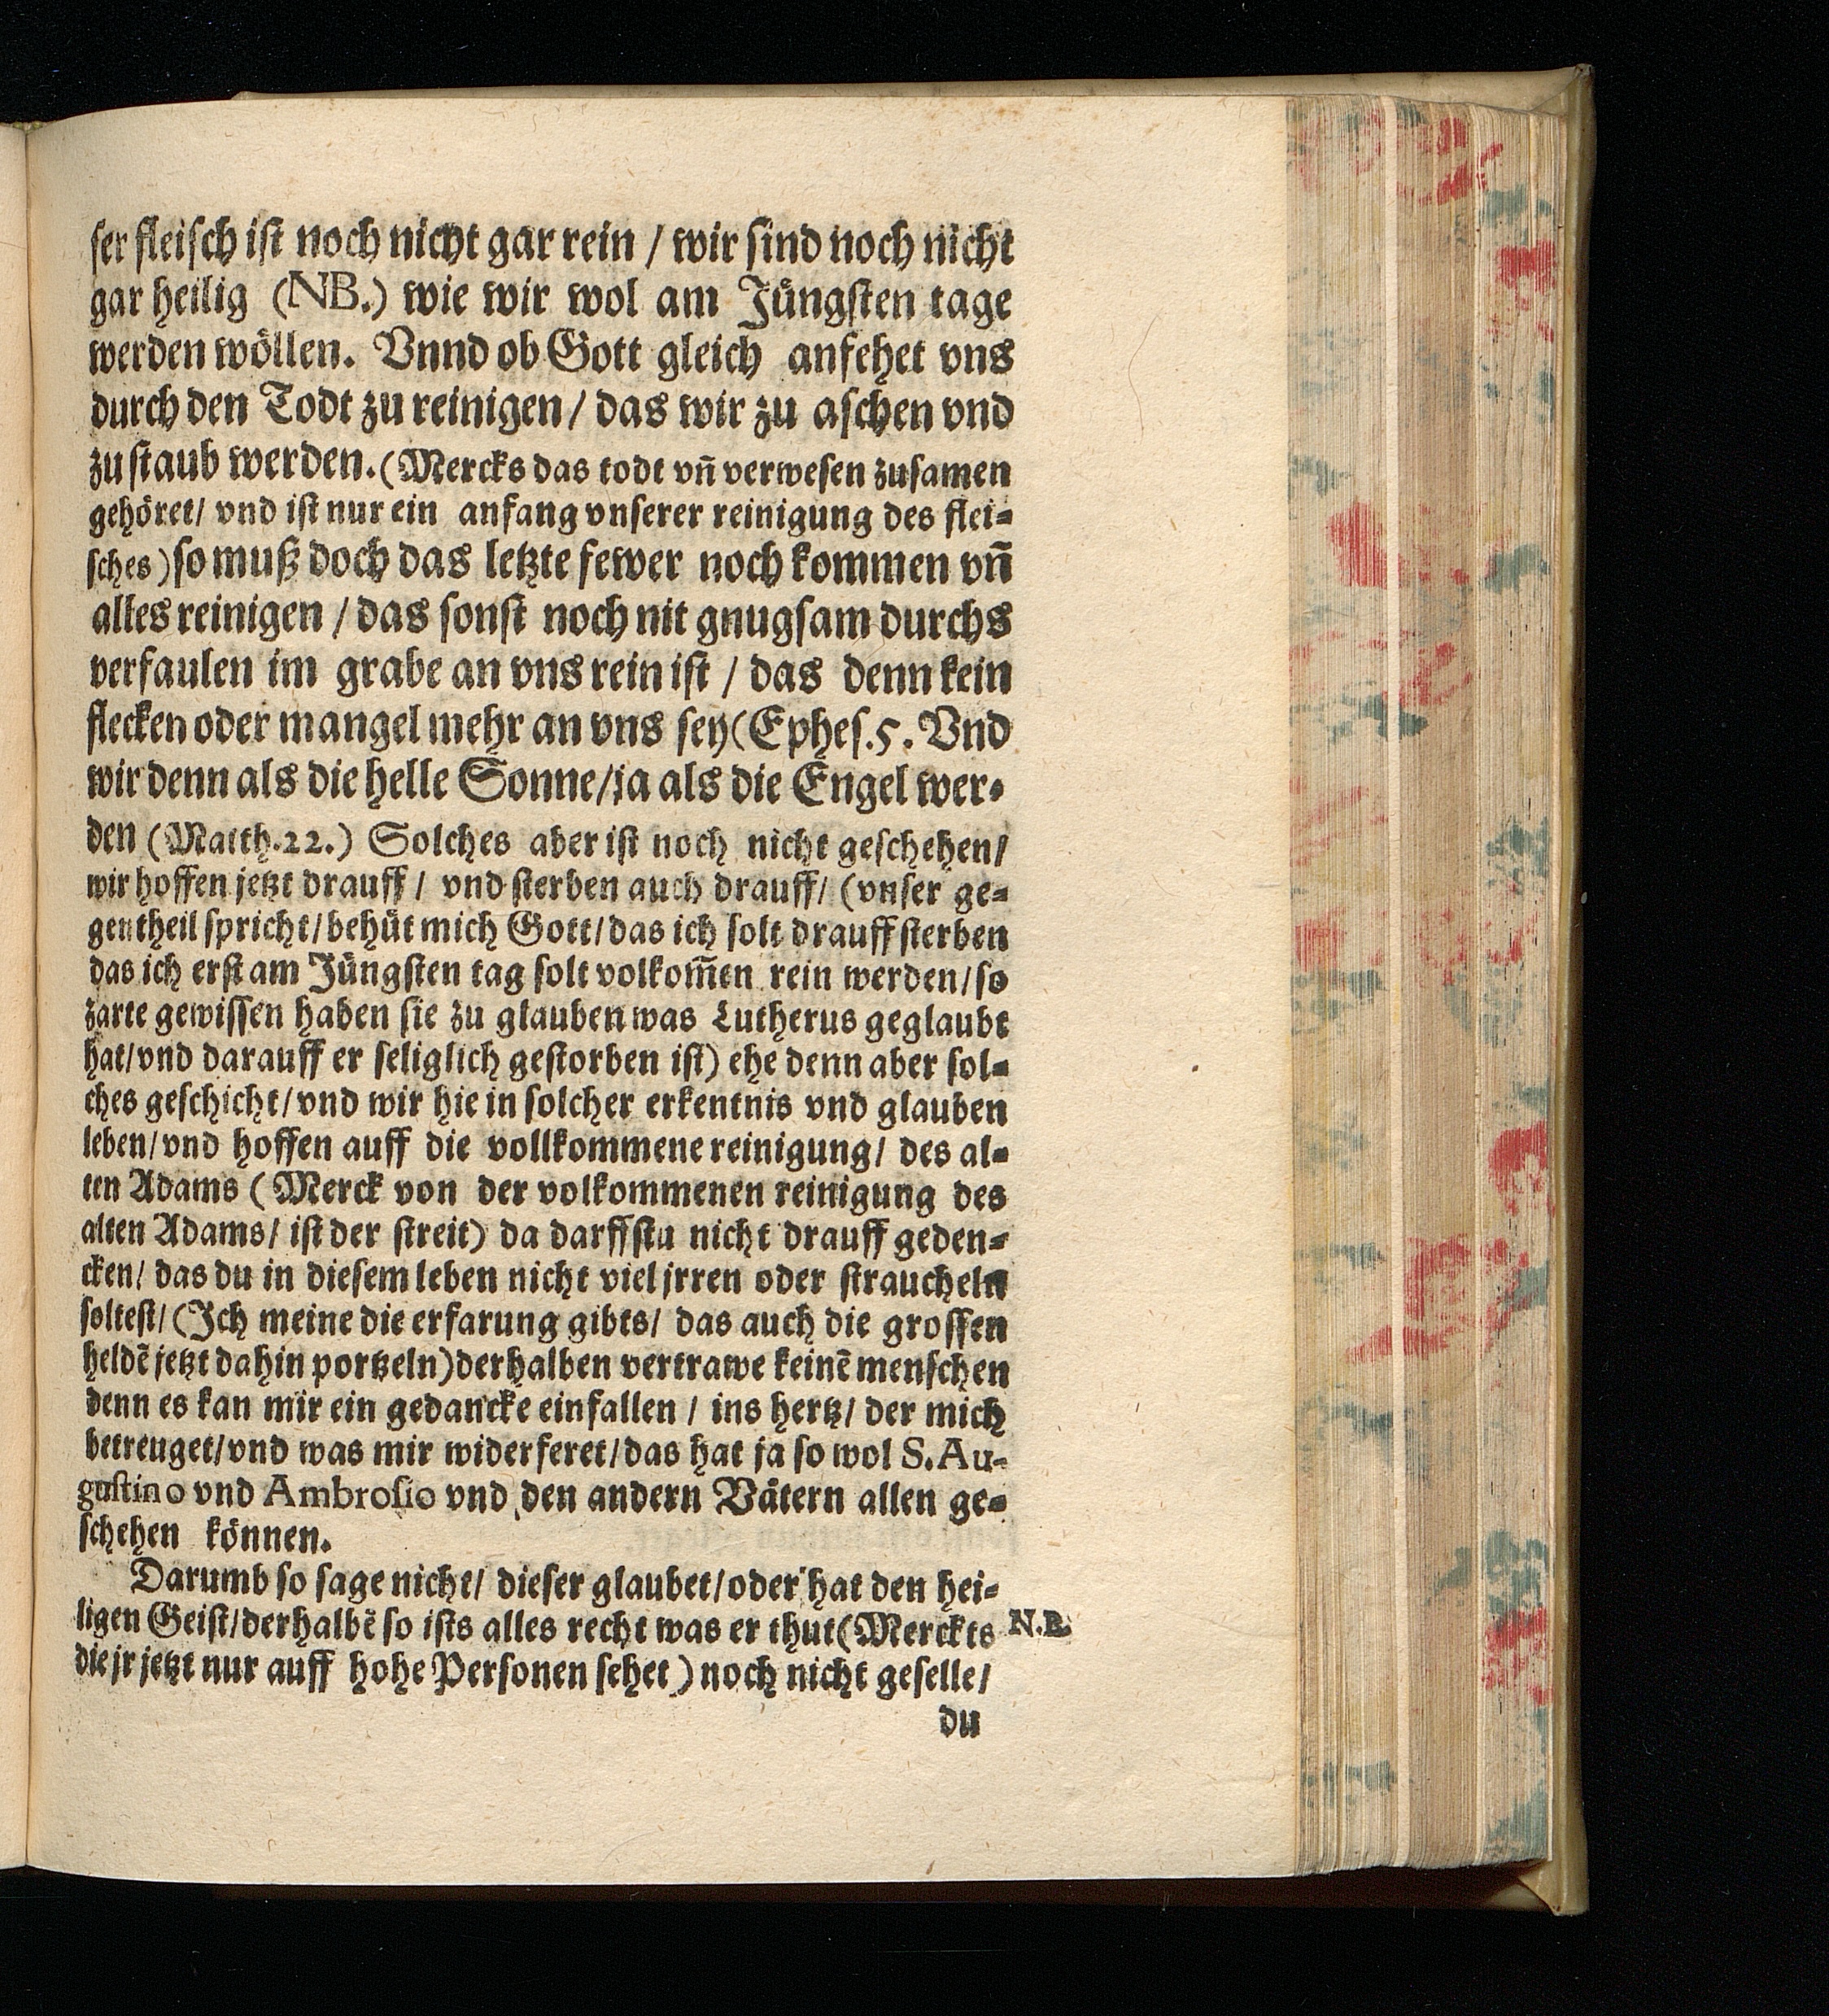 ser fleisch ist noch nicht gar rein / wir sind noch nicht
gar heilig (NB.) wie wir wol am Jüngsten tage
werden wöllen. Vnnd ob Gott gleich anfehet vns
durch den Todt zu reinigen / das wir zu aschen vnd
zu staub werden. (Mercks das todt vñ verwesen zusamen
gehöret / vnd ist nur ein anfang vnserer reinigung des flei-
sches) so muß doch das letzte fewer noch kommen vñ
alles reinigen / das sonst noch nit gnugsam durchs
verfaulen im grabe an vns rein ist / das denn kein
flecken oder mangel mehr an vns sey (Ephes. 5. Vnd
wir denn als die helle Sonne / ja als die Engel wer-
den (Matth. 22.) Solches aber ist noch nicht geschehen /
wir hoffen jetzt drauff / vnd sterben auch drauff / (vnser ge-
gentheil spricht / behüt mich Gott / das ich solt drauff sterben
das ich erst am Jüngsten tag solt volkom̃en rein werden / so
zarte gewissen haben sie zu glauben was Lutherus geglaubt
hat / vnd darauff er seliglich gestorben ist) ehe denn aber sol-
ches geschicht / vnd wir hie in solcher erkentnis vnd glauben
leben / vnd hoffen auff die vollkommene reinigung / des al-
ten Adams (Merck von der volkommenen reinigung des
alten Adams / ist der streit) da darffstu nicht drauff geden-
cken / das du in diesem leben nicht viel jrren oder straucheln
soltest / (Ich meine die erfarung gibts / das auch die grossen
heldẽ jetzt dahin portzeln) derhalben vertrawe keinẽ menschen
denn es kan mir ein gedancke einfallen / ins hertz / der mich
betreuget / vnd was mir widerferet / das hat ja so wol S. Au-
gustino vnd Ambrosio vnd den andern Vätern allen ge-
schehen können.
Darumb so sage nicht / dieser glaubet / oder hat den hei-
ligen Geist / derhalbẽ so ists alles recht was er thut (Merckts N.B.
die jr jetzt nur auff hohe Personen sehet) noch nicht geselle /
du